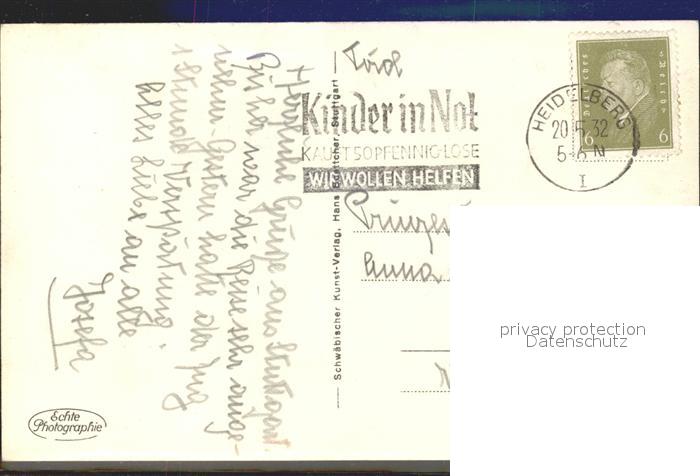 Herzliche Grüße aus Stuttgart.
Bis her war die Reise sehr ange-
nehm. Gestern hatte der Zug
1 Stunde Verspätung.
Alles Liebe an alle
Josefa
Echte
Photographie
Schwäbischer Kunst-Verlag, Hans Boettcher, Stuttgart
Kinder in Not
KAUFT 50 PFENNIG-LOSE
WIR WOLLEN HELFEN
HEIDELBERG
20.5.32
5-6 N
I
Deutsches Reich
6 6
Anna
privacy protection
Datenschutz